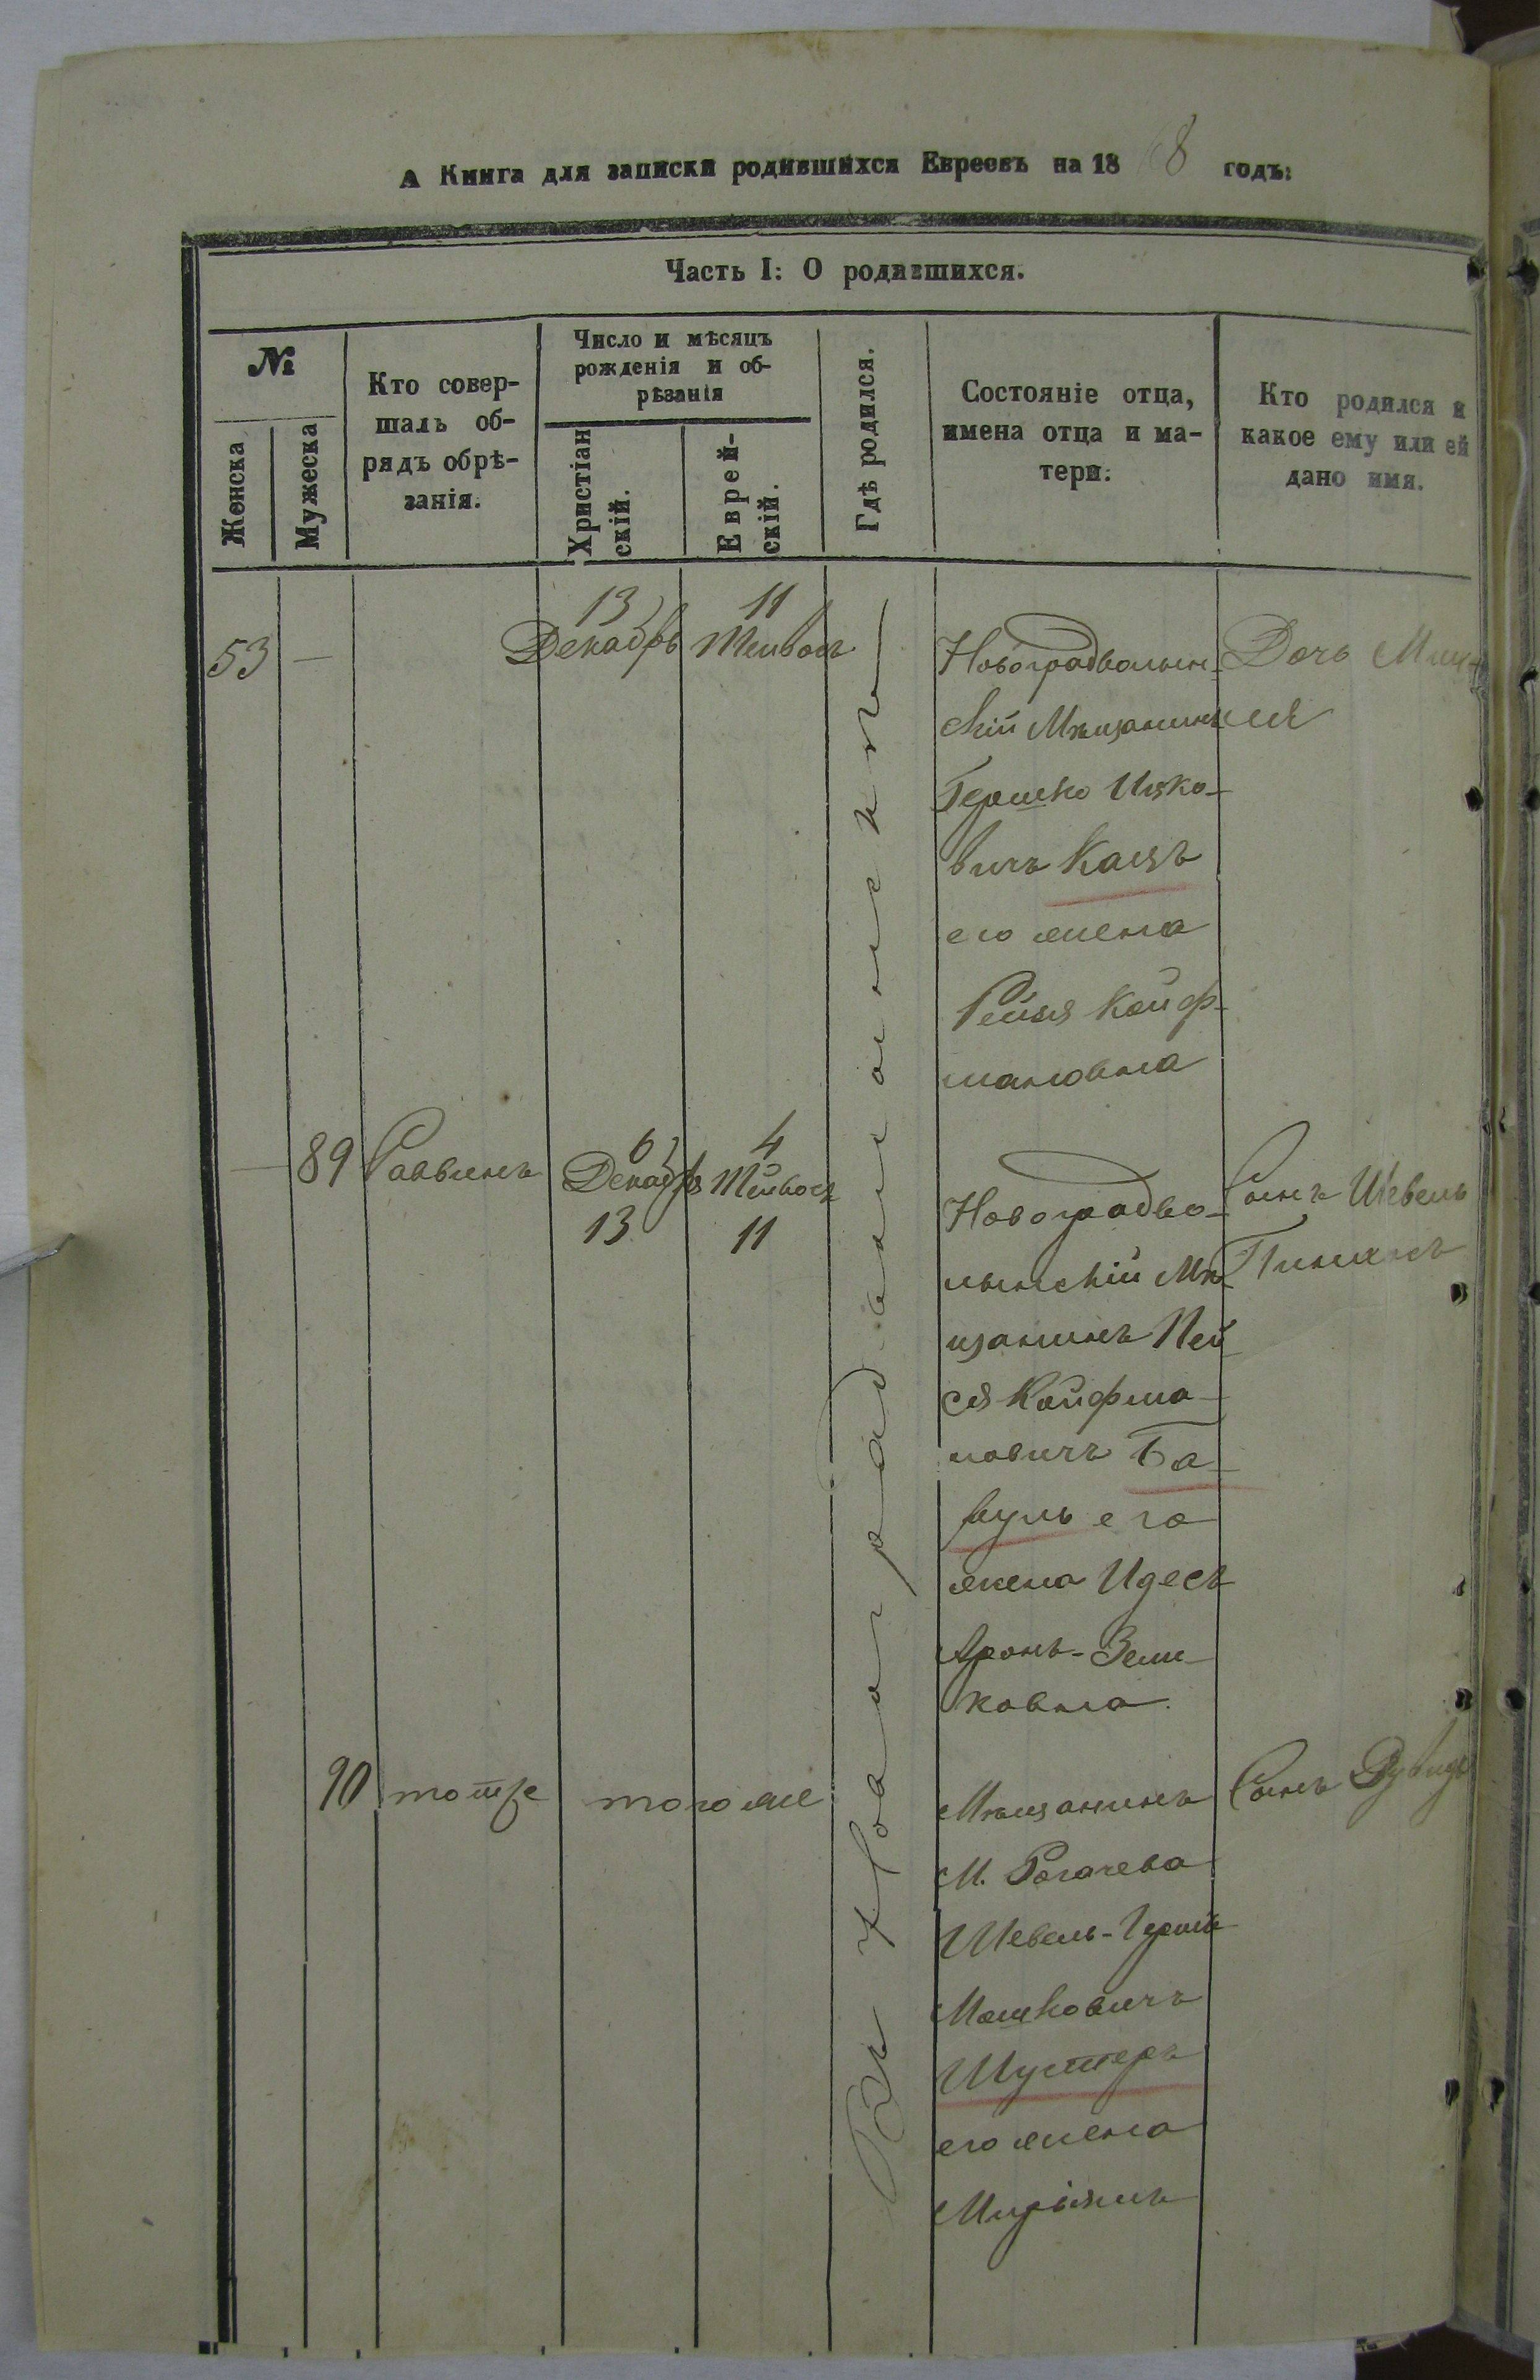 А Книга для записки родившихся Евреевъ на 1868 годъ:
Часть I: О родившихся.
№
Женска
Мужеска
Кто совер-
шалъ об-
рядъ обрѣ-
занія.
Число и мѣсяцъ
рожденія и об-
рѣзанія
Христіан
скій.
Еврей-
скій.
Гдѣ родился.
Состояніе отца,
имена отца и ма-
тери.
Кто родился и
какое ему или ей
дано имя.
Въ Новоградволынскѣ
53 —
13
Декабрь
11
Тейвосъ
Новоградволын-
скій Мѣщанинъ
Гершко Ицко-
вичъ Кацъ
его жена
Рейзя Кайф-
мановна
Дочь
— 89
Раввинъ
6
Декабрь
13
4
Тейвосъ
11
Новоградво-
лынскій Мѣ-
щанинъ Пей
ся Кайфма-
новичъ Ба-
вуль его
жена Идесъ
Аронъ-Зели-
ковна.
Сынъ Шевель
Пинхасъ
90
тотже
того же
Мѣщанинъ
М. Рогачева
Шевель-Герш
Мошковичъ
Шустеръ
его жена
Миріямъ
Сынъ Дувидъ